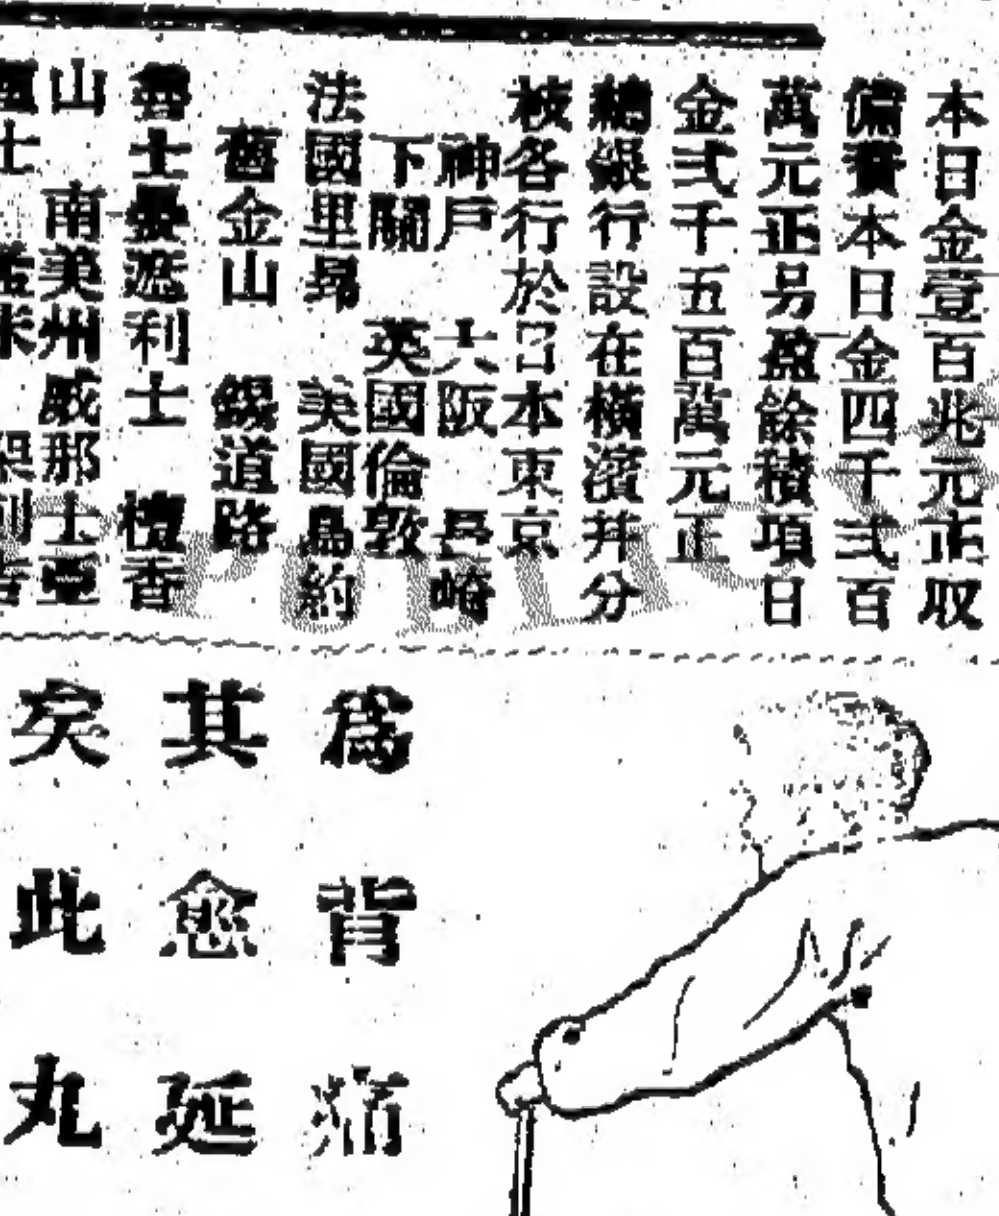 本日金壹百兆元正収
備實本日金四千弍百
萬元正另盈餘積項日
金弍千五百萬元正
總銀行設在橫濱并分
枝各行於日本東京
神戶 大阪 長崎
下關 英國倫敦
法國里昂 美國鳥約
舊金山 鏹道路
雲士晏遮利士 檀香
山 南美州 威那士
士
為背痛
其愈延
矣此丸